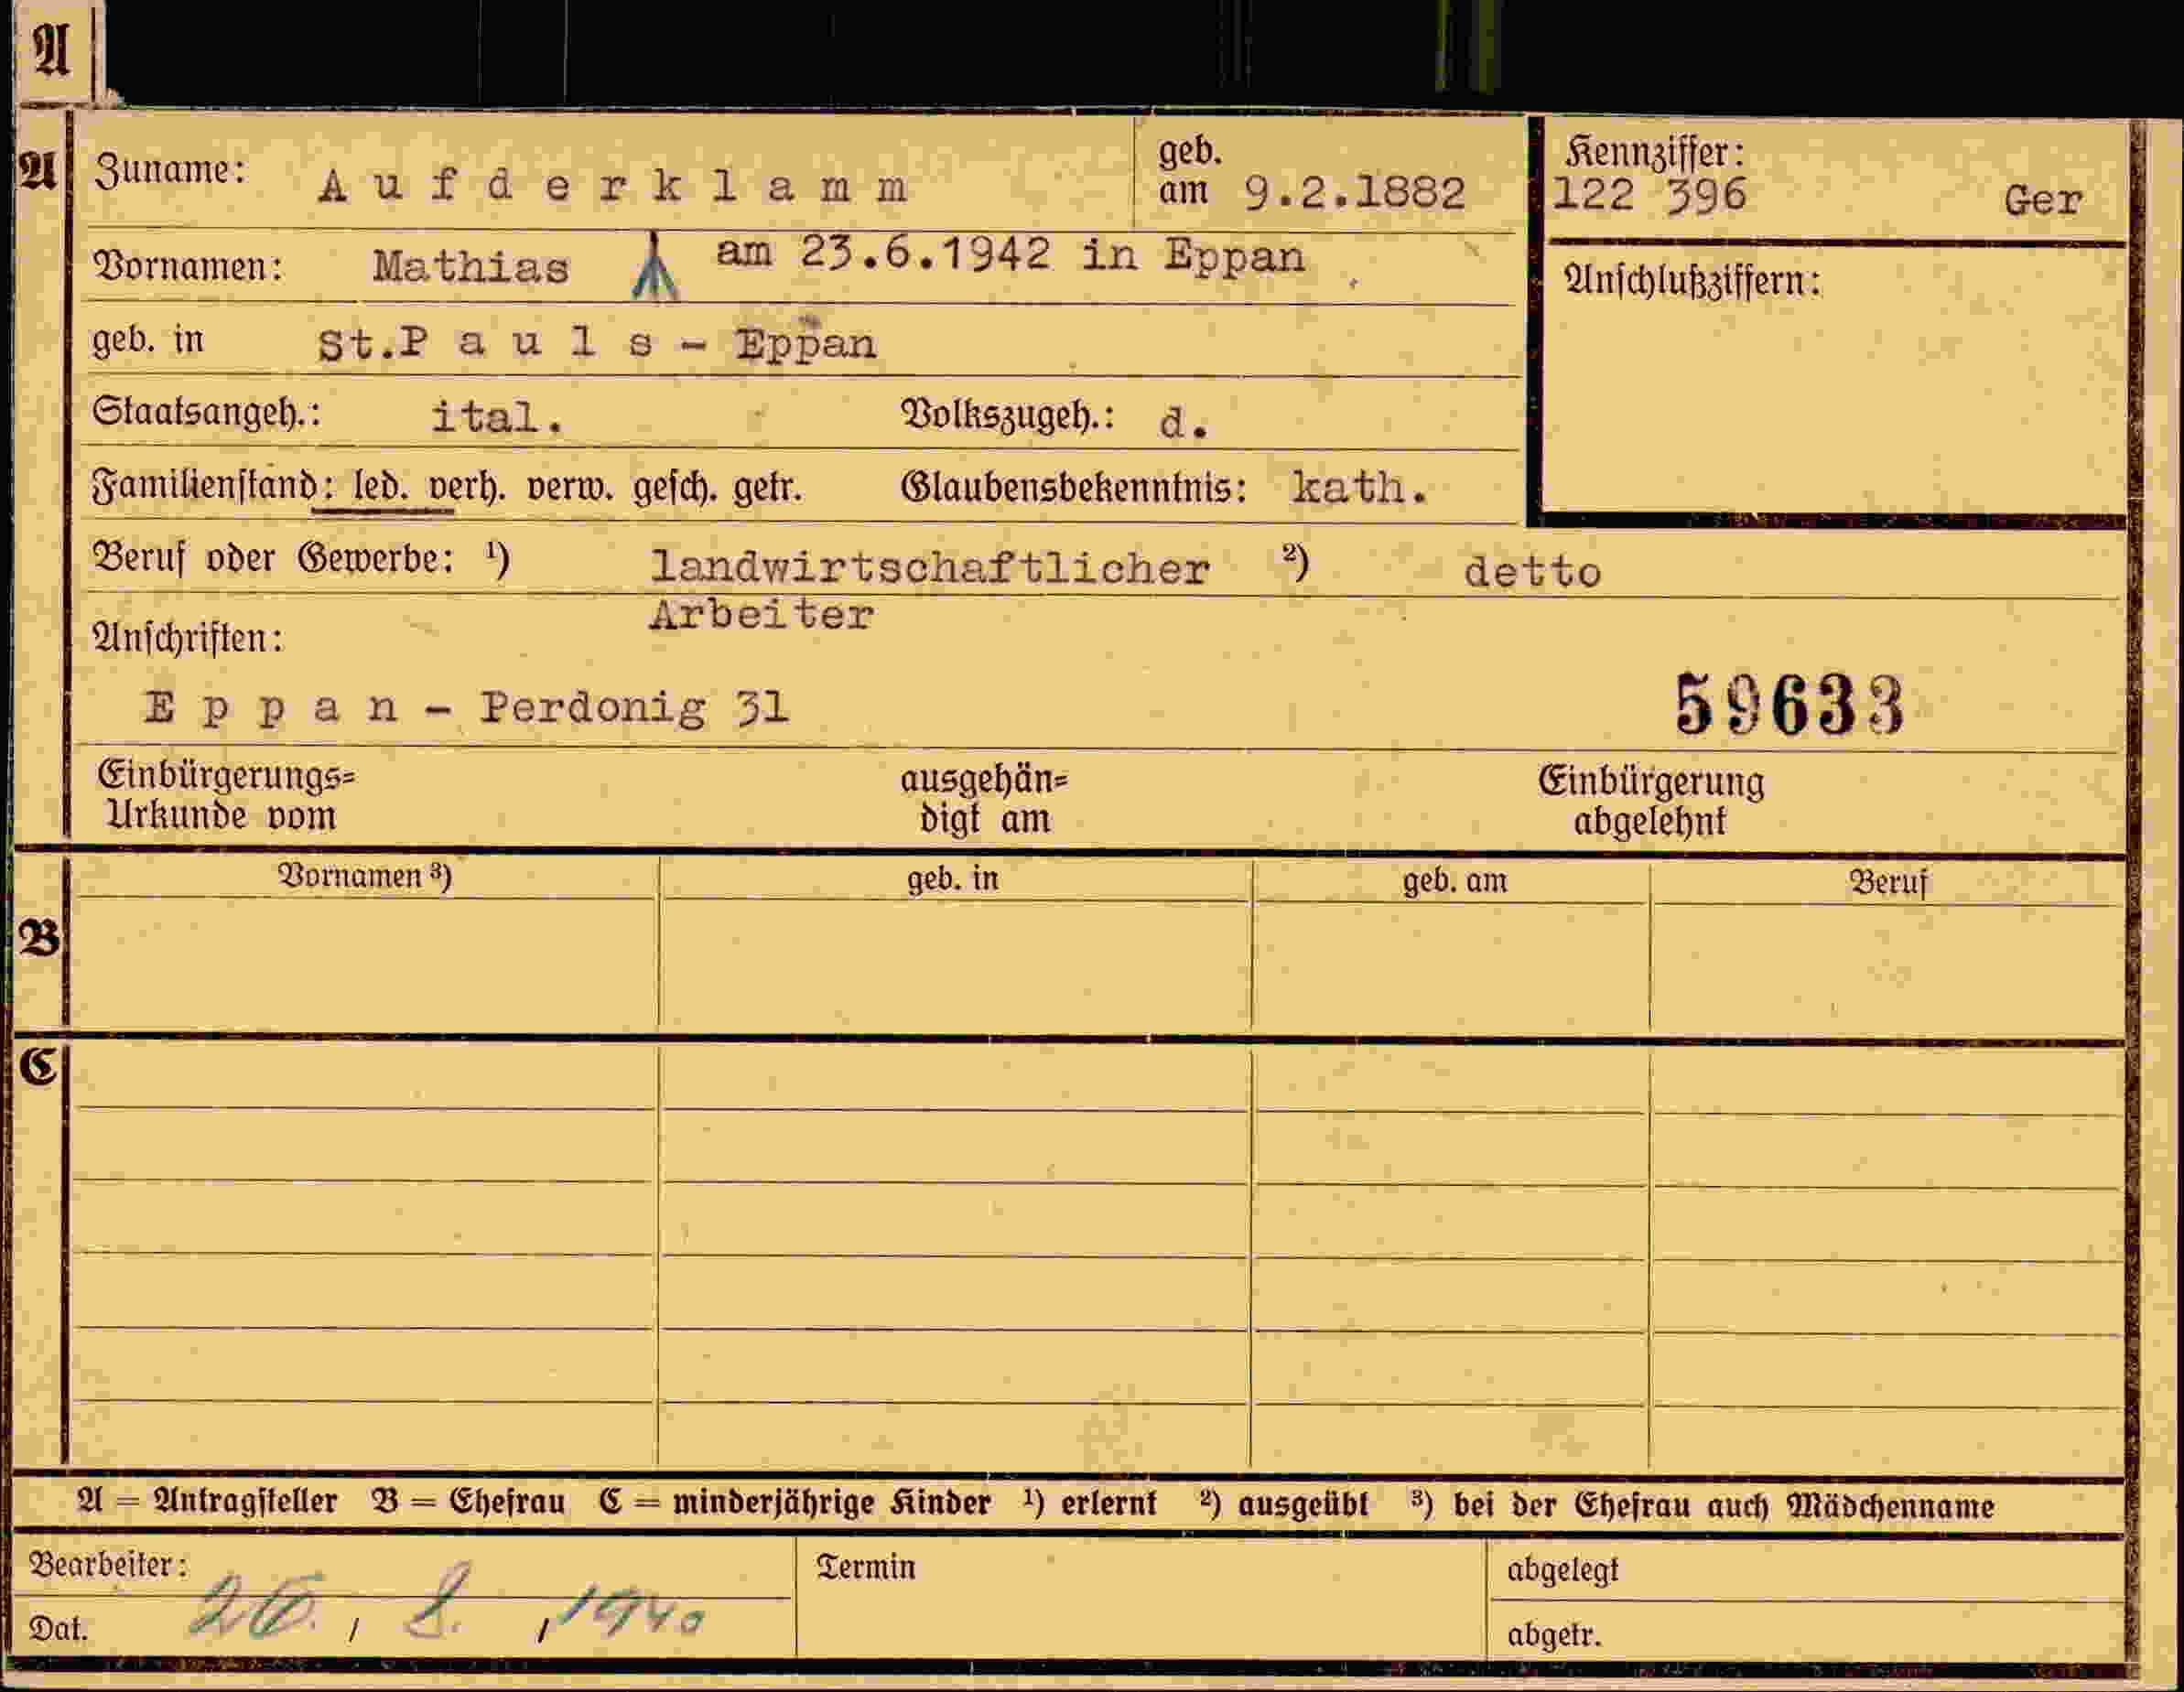 A
A
Zuname: Aufderklamm
geb.
am 9.2.1882
Kennziffer:
122 396 Ger
Vornamen: Mathias am 23.6.1942 in Eppan
Anschlußziffern:
geb. in St.Pauls - Eppan
Staatsangeh.: ital. Volkszugeh.: d.
Familienstand: led. verh. verw. gesch. getr. Glaubensbekenntnis: kath.
Beruf oder Gewerbe: ¹) landwirtschaftlicher ²) detto
Arbeiter
Anschriften:
Eppan - Perdonig 31
59633
Einbürgerungs=
Urkunde vom
ausgehän=
digt am
Einbürgerung
abgelehnt
Vornamen ³) geb. in geb. am Beruf
B
C
A = Antragsteller B = Ehefrau C = minderjährige Kinder ¹) erlernt ²) ausgeübt ³) bei der Ehefrau auch Mädchenname
Bearbeiter:
Dat. 26. / 8. / 1940
Termin
abgelegt
abgetr.